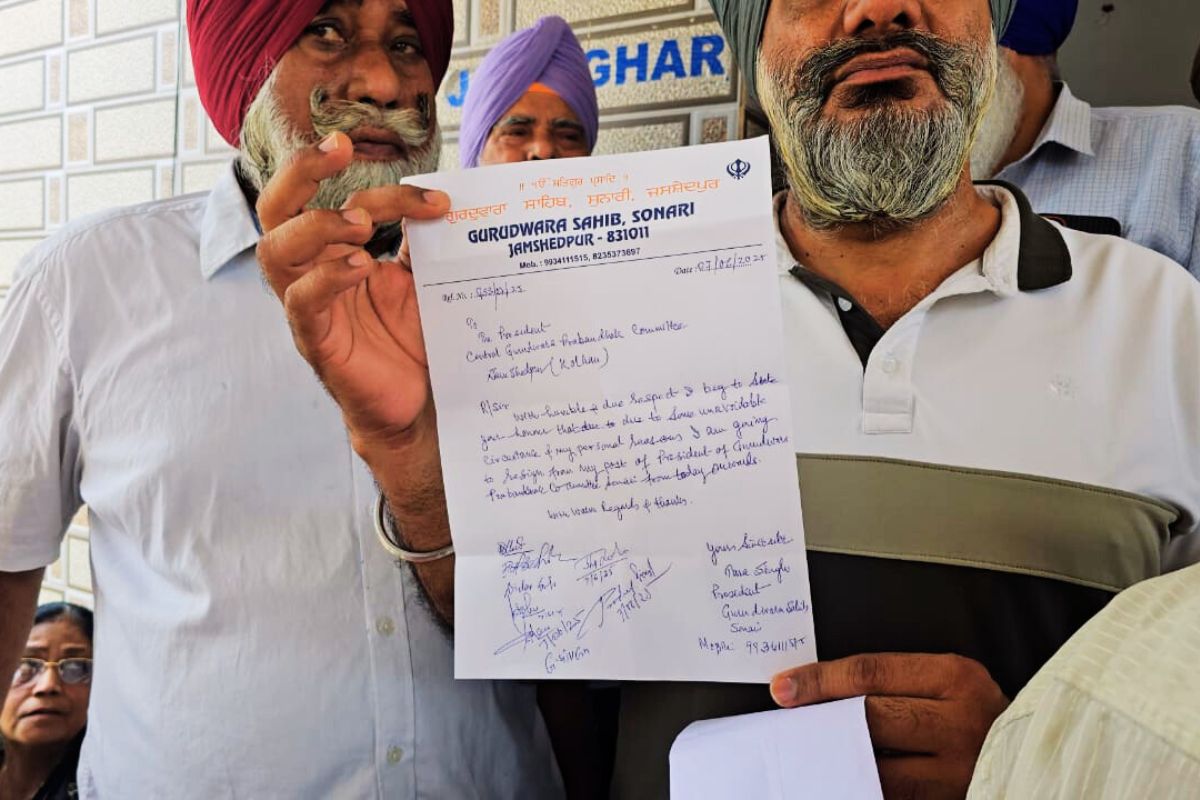 GHAR
॥ ੴ ਸਤਿਗੁਰ ਪ੍ਰਸਾਦਿ ॥
ਗੁਰਦੁਵਾਰਾ ਸਾਹਿਬ, ਸੁਨਾਰੀ, ਜਮਸ਼ੇਦਪੁਰ
GURUDWARA SAHIB, SONARI
JAMSHEDPUR - 831011
Mob. : 9934111515, 8235373697
Ref. No. :
Date : 07/06/2025
To
The President
Central Gurudwara Prabandhak Committee
Jamshedpur (Kolhan)
R/Sir
With humble & due respect I beg to state
your honour that due to due to some unavoidable
circustance & my personal reasons I am going
to resign from my post of President of Gurudwara
Prabandhak Committee Sonari from today onwards.
With warm regards & thanks.
Yours Sincerely
Tara Singh
President
Gurudwara Sahib
Sonari
Mobile: